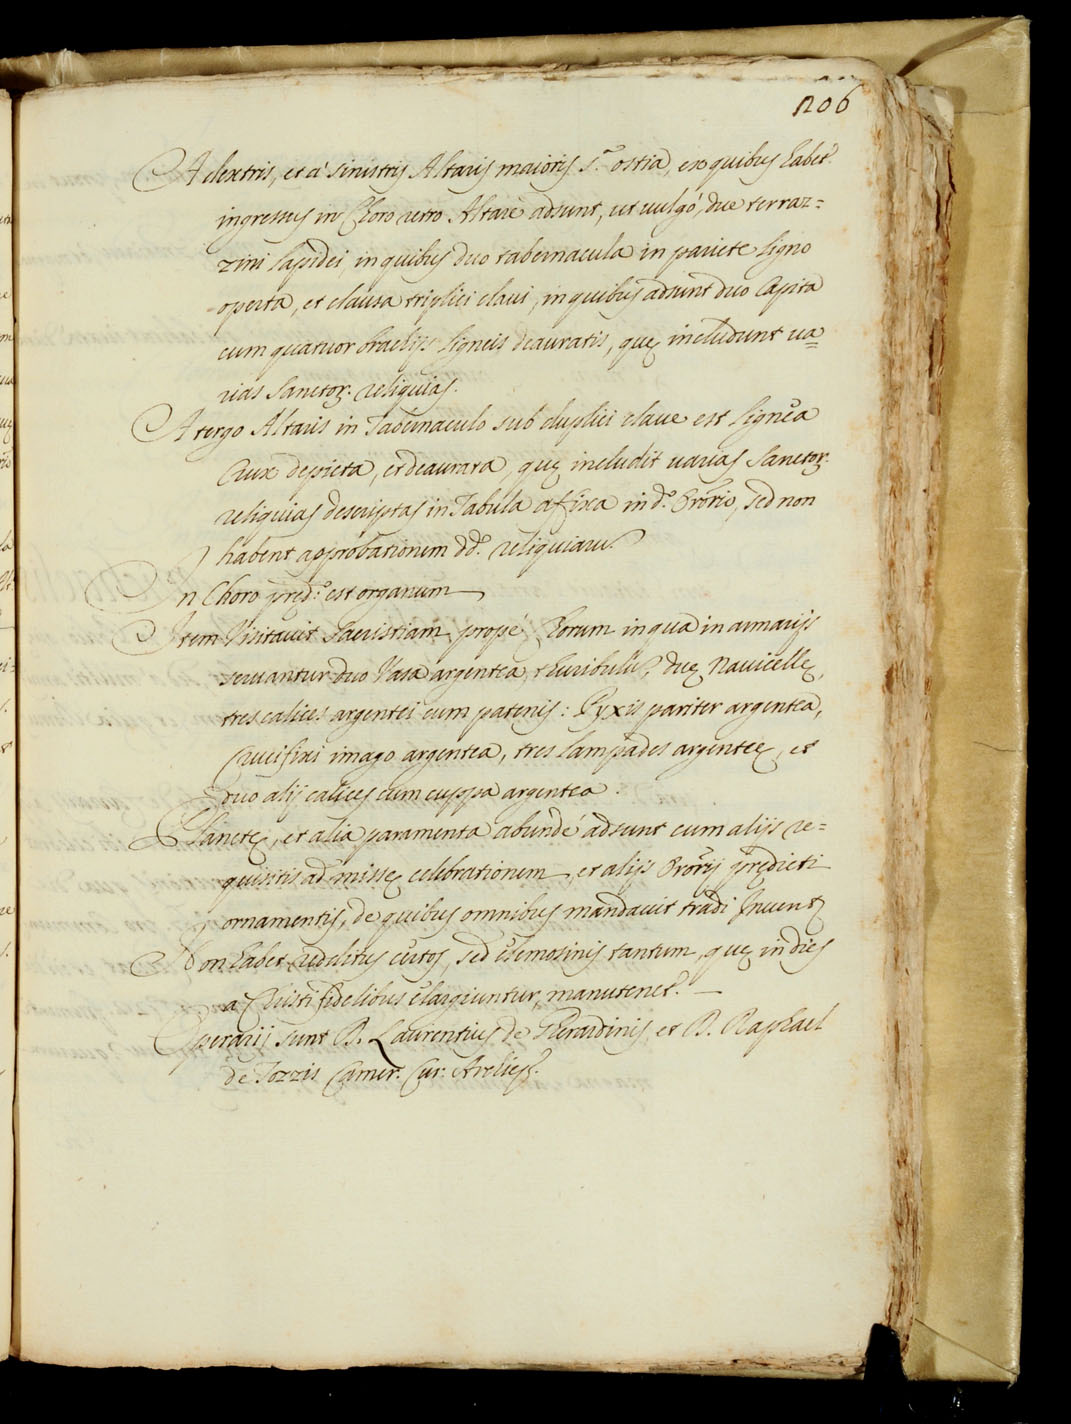 206
A dextris, et à sinistris Altaris maioris s.t ostia, ex quibus habet.r
ingressus in Choro retro Altare adsunt, ut vulgò, due terraz=
zini lapidei, in quibus duo tabernacula in pariete ligno
operta, et clausa triplici clavi, in quibus adsunt duo Capita
cum quatuor brachijs ligneis deauratis, quę includunt va=
rias Sanctor. reliquias.
A tergo Altaris in Tabernaculo sub duplici clave est lignea
Crux depicta, et deaurata, quę includit varias Sanctor.
reliquias descriptas in Tabula afixa in d.o Orōrio, sed non
habent approbationem dd. reliquiaru.
In Choro pręd.o est organum
Item Visitavit Sacristiam propè Chorum in qua in armarijs
servantur duo Vasa argentea, thuribula, duę navicellę,
tres calices argentei cum patenis: Pyxis pariter argentea,
Crucifixi imago argentea, tres lampades argenteę, et
duo alij calices cum cuppa argentea.
Planetę, et alia paramenta abundè adsunt cum alijs re=
quisitis ad missę celebrationem, et alijs Orōrij prędicti
ornamentis, de quibus omnibus mandavit tradi Invent.
Non habet redditus certos, sed elemosinis tantum, quę in dies
a Christi fidelibus elargiuntur, manutenet.r
Operarij sunt D. Laurentius de Gherardinis, et D. Raphael
de Tozzis Camer. Cur. Archiep.